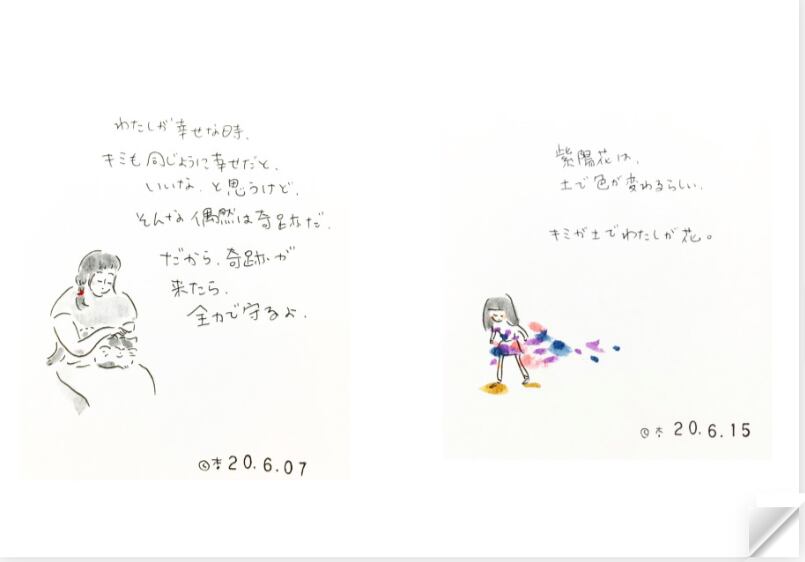 わたしが幸せな時、
キミも同じように幸せだと、
いいな、と思うけど、
そんな偶然は奇跡だ、
だから、奇跡が
来たら、
全力で守るよ、
20.6.07
紫陽花は、
土で色が変わるらしい、
キミが土でわたしが花。
20.6.15